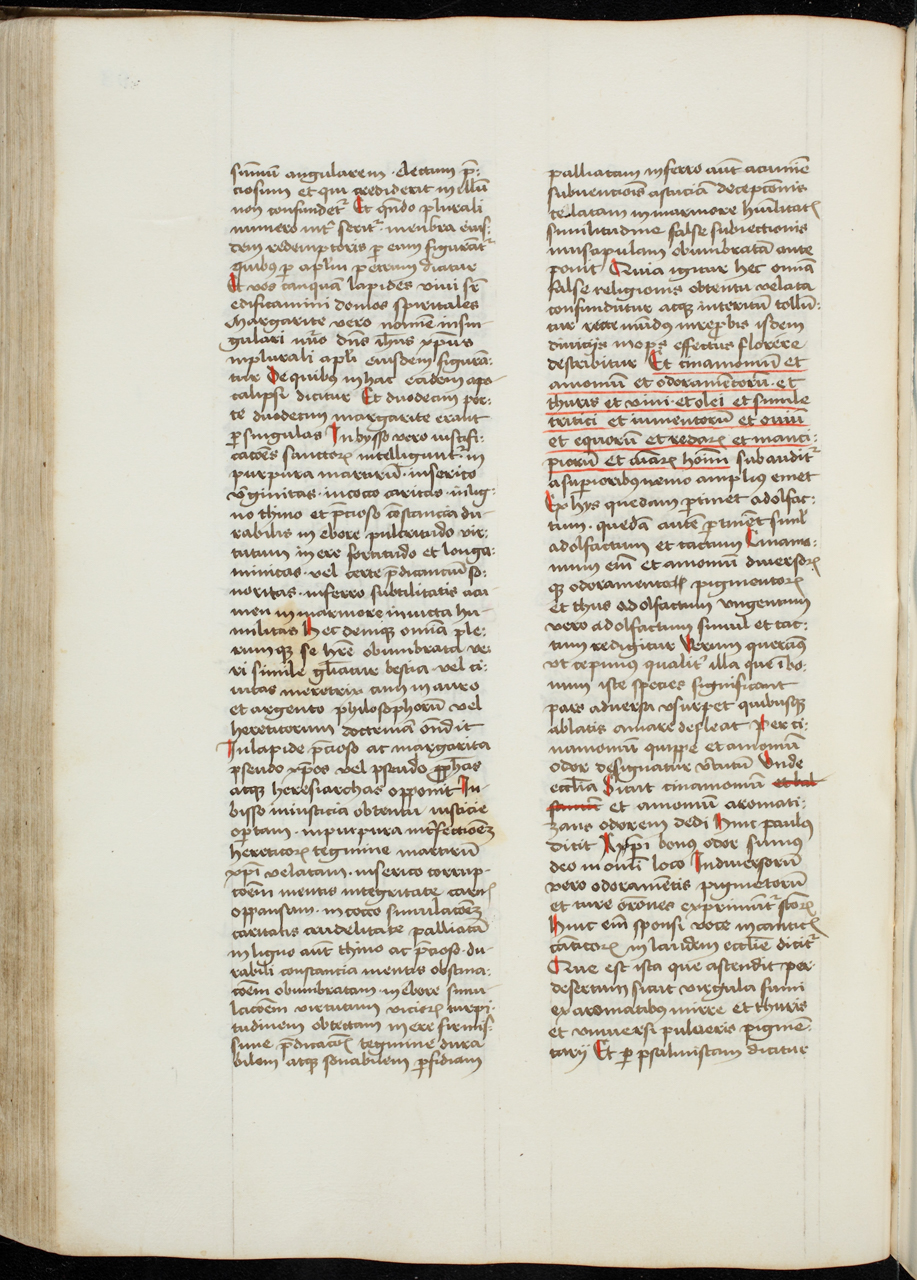 sūmū angularem · electum p̄-
ciosum et qui crediderit in illū
non confundet᷑ Et qn̄do plurali
numero int᷑ serit᷑ · menbra eius-
dem redemptoris p̱ eam figurāt᷑
Quibus p̱ aplm̄ petrum dicitur
Et vos tanquā lapides viui sr̄
edificamini domos spiritales
Margarite vero nomīe in sin-
gulari nr̄o dn̄s ih̄us xp̄us
in plurali apl̄i eiusdem figurā-
tur De quibus in hac eadem apo-
calipsi dicitur Et duodecim por-
te duodecim margarite erant
p̱ singulas In bysso vero iustifi-
catōes sanctoꝝ intelligunt᷑ in
purpura martirū · in serico
v̓ginitas · in coco caritas · in lig-
no thino et p̄cioso cōstancia du-
rabilis in ebore pulcritudo vir-
tutum in ere fortitudo et longa-
nimitas · vel certe p̄dicanciū so-
noritas · in ferro subtilitatis acu-
men in marmore inuicta hu-
militas Hec deniqꝫ om̄ia ple-
rumqꝫ se hr̄e obumbrata ve-
ri simile gl̄iatur bestia vel ci-
uitas meretrix tam in auro
et argento philosophorū vel
hereticorum doctrinā on̄dit
In lapide p̄cioso ac margarita
pseudo xp̄os vel pseudo ꝓph̄as
atqꝫ heresiarchas opponit In
bisso iniusticia obtentu iusticie
op̱tam · in purpura int̓fectionēꝫ
hereticoꝝ tegmine martirū
xp̄i velatam · in serico corrup-
tōem mentis integritate carnꝭ
oppansam · in cocco simulatōeꝫ
caritatis crudelitate palliatā
in ligno aut̄ thino ac p̄cioso · du-
rabili constancia mentis obstina-
tōem obumbratam · in ebore simu-
latōem virtutum vicioꝝ turpi-
tudinem obtectam in ere firmis-
sime p̄dicatōis tegmine dura-
bilem atqꝫ sonabilem p̱fidiam
palliatam in ferro aut̄ acumīe
subuencionis astuciā decepcōnis
celatam in marmore hūilitatꝭ
similitudine false subiectionis
muscipulam obumbratā ante
ponit Quia igitur hec om̄ia
false religionis obtentu velata
confunduntur atqꝫ interitum tollū-
tur recte mūdus in rep̱bis isdem
diuicijs inops effectus florere
describitur Et cinamomū et
amomū et odoramentorū · et
thuris et vini · et olei et simile
tritici et iumentorū et ouiū
et equorū et redaꝝ et manci-
piorū et aīaꝝ hoīm subaudit᷑
a superioribus nemo amplius emet
Ex hys quedam p̱tinet ad olfac-
tum · quedā autē p̱tinēt simĺ
ad olfactum et tactum Cinamo-
mum eīm et amomū diuersoꝝ
qꝫ odoramentoꝝ pigmentoꝝ
et thus ad olfactum vngentum
vero ad olfactum simul et tac-
tum redigitur Verum queramꝰ
vt cepimus qualit᷑ illa que ī bo-
num iste species significant
pars aduersa vsurpet quibusqꝫ
ablatis amare defleat Per ci-
namomū quippe et amomū
odor designatur v̓tutū Vnde
eccl̄ia Sicut cinamomū et bal-
samū et amomū aromati-
zans odorem dedi Hinc paulus
dicit Xp̄i bonus odor sumus
deo in omī loco In diuersorū
vero odoramentis pigmētorū
et ture or̄ones exprimūt᷑ sc̄oꝝ
Hinc eīm sponsi voce in canticꝭ
canticoꝝ in laudem eccl̄ie dicit᷑
Que est ista que ascendit per
desertum sicut virgula fumi
ex aromatibus mirre et thuris
et vniuersi pulueris pigmē-
tarij Et p̱ psalmistam dicitur